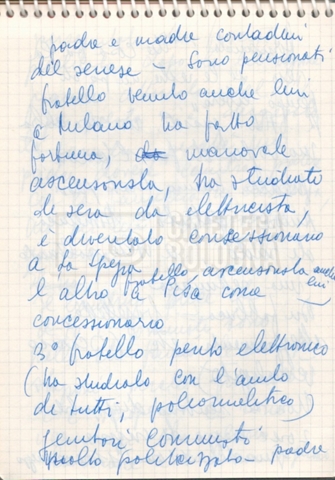 padre e madre contadini
del senese – Sono pensionati
fratello venuto anche lui
a Milano ha fatto
fortuna, da manovale
ascensorista, ha studiato
di sera da elettricista,
è diventato concessionario
a La Spezia
l'altro fratello ascensorista anche lui
a Pisa come
concessionario
3° fratello perito elettronico
(ha studiato con l'aiuto
di tutti, poliomielitico)
Genitori comunisti
molto politicizzato – padre